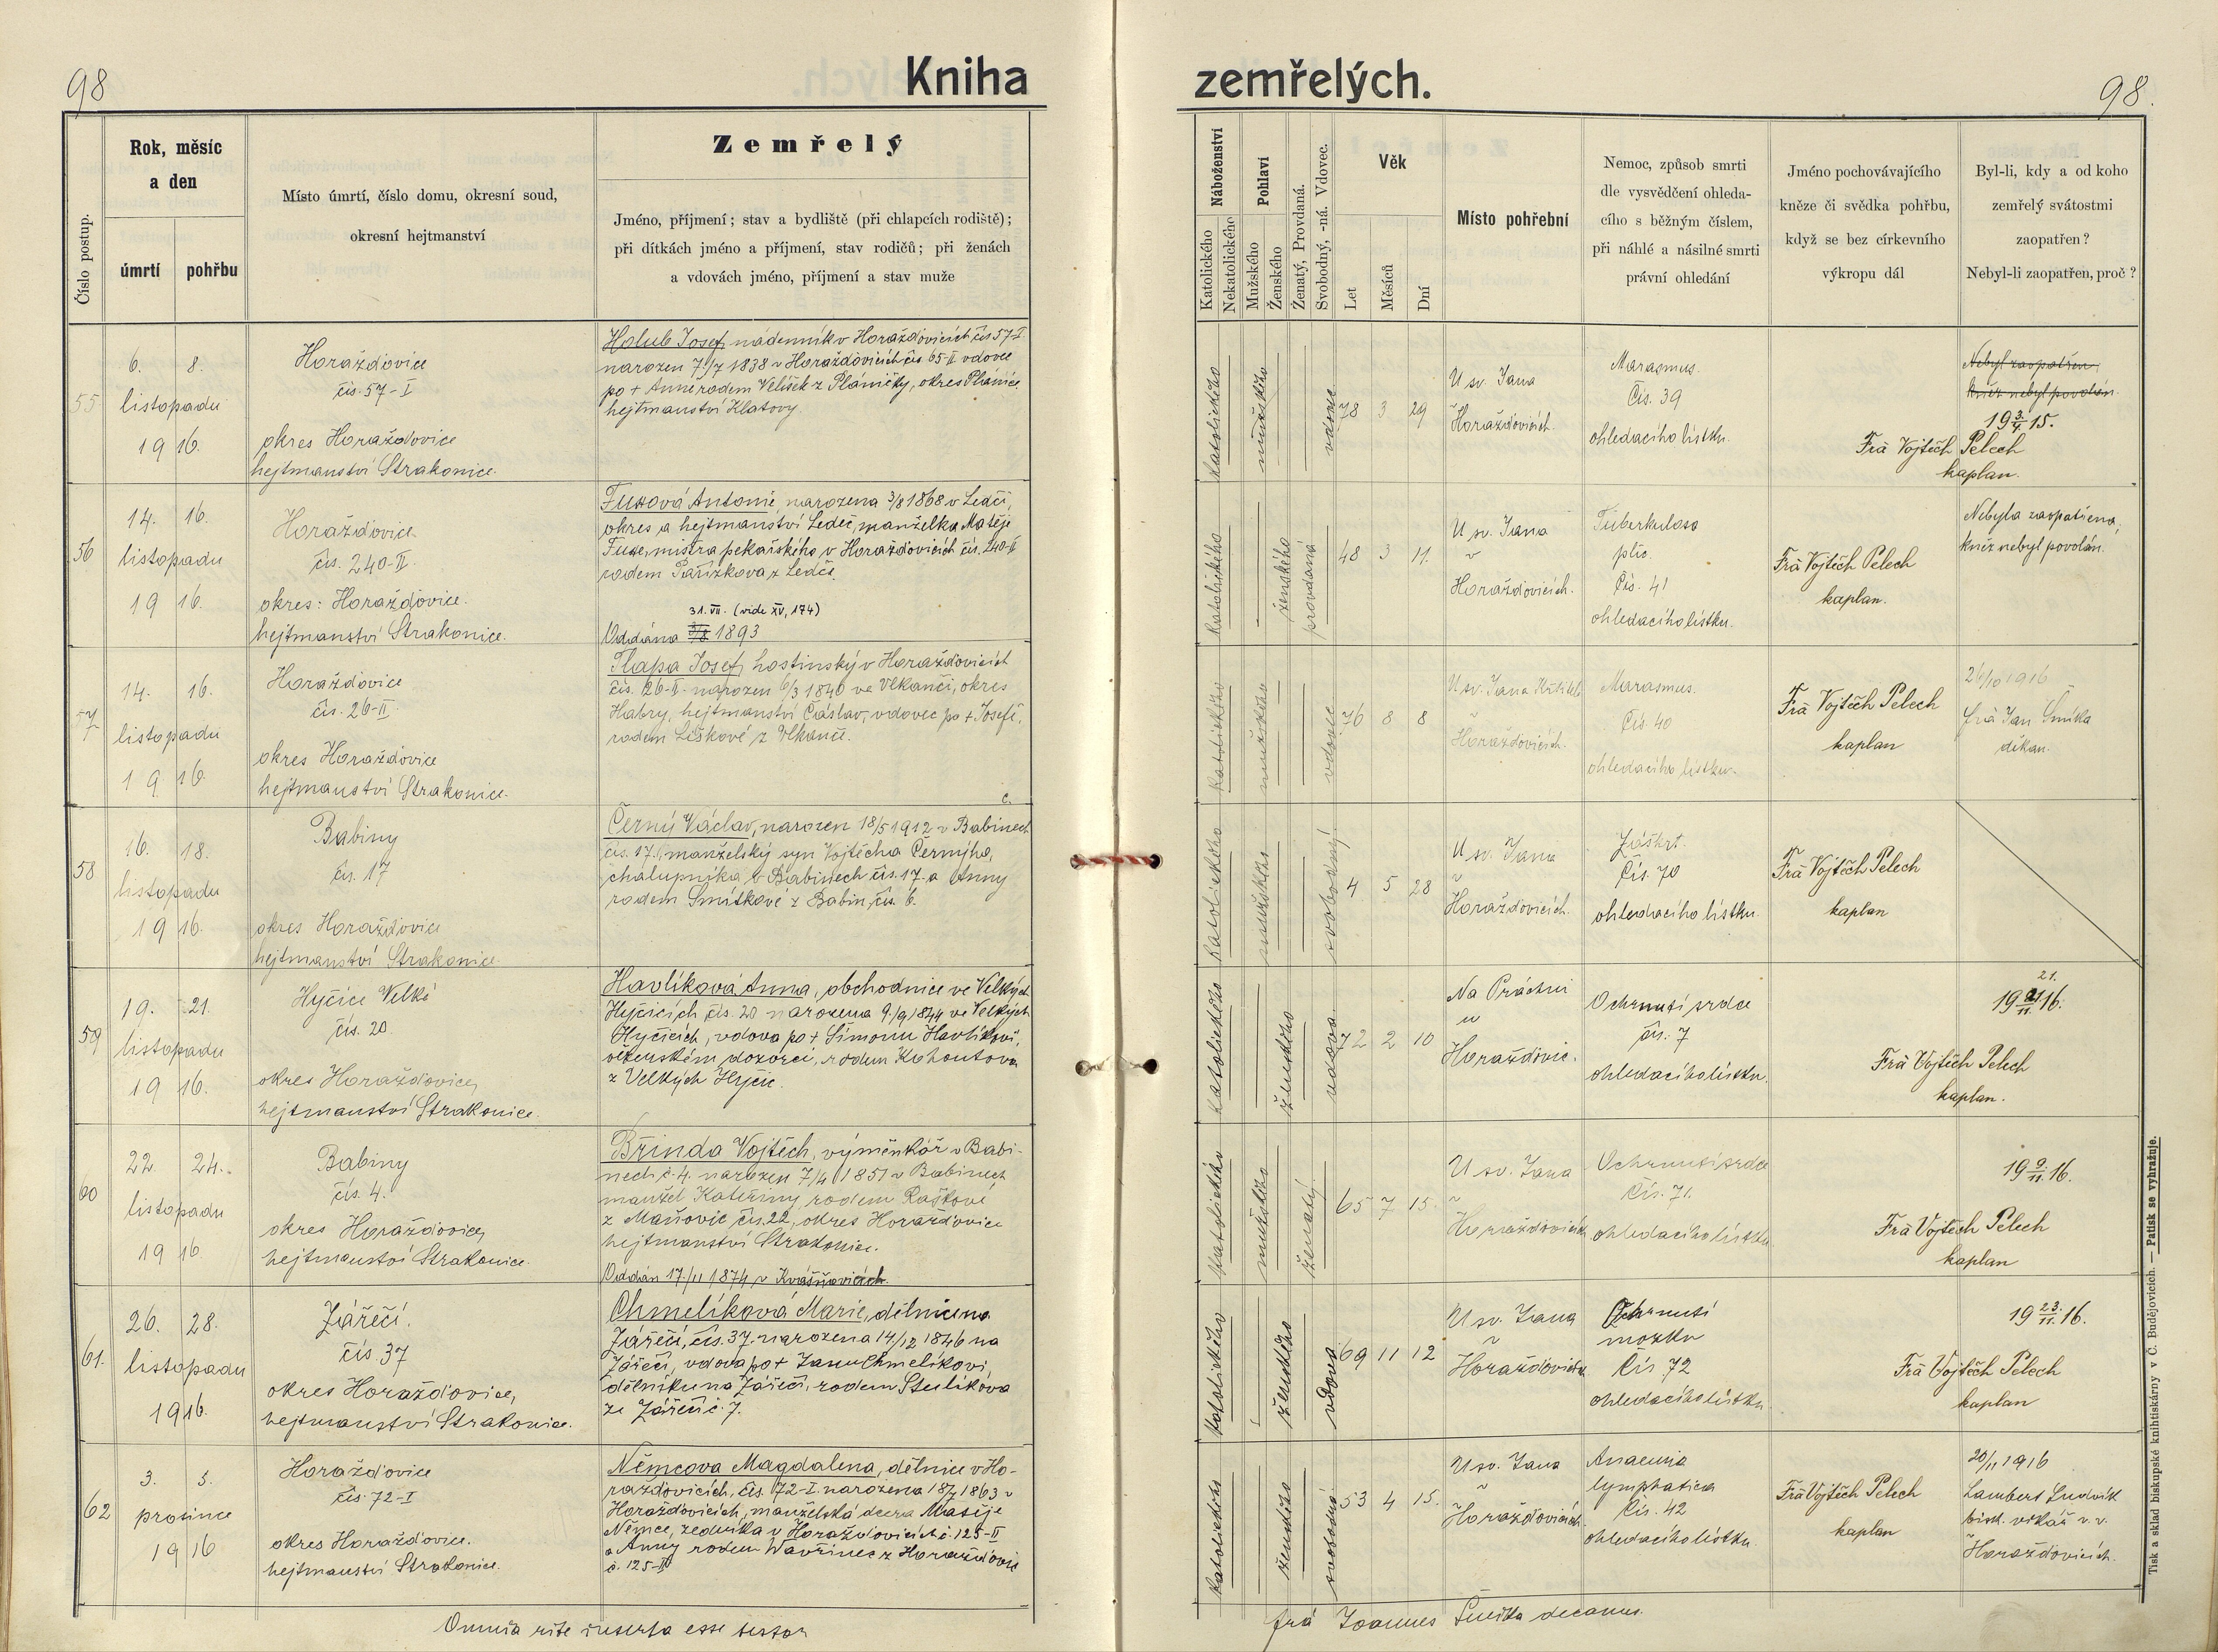 98
Kniha
zemřelých.
98.
Číslo postup.
Rok, měsíc
a den
úmrtí
pohřbu
Místo úmrtí, číslo domu, okresní soud,
okresní hejtmanství
Zemřelý
Jméno, příjmení; stav a bydliště (při chlapcích rodiště);
při dítkách jméno a příjmení, stav rodičů; při ženách
a vdovách jméno, příjmení a stav muže
Náboženství
Katolického
Nekatolického
Pohlaví
Mužského
Ženského
Ženatý, Provdaná.
Svobodný, -ná. Vdovec.
Věk
Let
Měsíců
Dní
Místo pohřební
Nemoc, způsob smrti
dle vysvědčení ohleda-
cího s běžným číslem,
při náhlé a násilné smrti
právní ohledání
Jméno pochovávajícího
kněze či svědka pohřbu,
když se bez církevního
výkropu dál
Byl-li, kdy a od koho
zemřelý svátostmi
zaopatřen?
Nebyl-li zaopatřen, proč?
55
6. 8.
listopadu
19 16.
Horažďovice
čís. 57-I
okres Horažďovice
hejtmanství Strakonice.
Holub Josef, nádenník v Horažďovicích čís 57-I
narozen 7./7 1838 v Horažďovicích čís. 65-II vdovec
po + Anně rodem Velíšek z Pláničky, okres Plánice,
hejtmanství Klatovy.
katolického
mužského
vdovec
78 3 29
U sv. Jana
v
Horažďovicích.
Marasmus.
Čís. 39
ohledacího lístku.
Nebyl zaopatřen,
kněz nebyl povolán.
19 3./ 15.
Frà Vojtěch Pelech
kaplan.
56
14. 16.
listopadu
19 16.
Horažďovice.
čís. 240-II.
okres: Horažďovice.
hejtmanství Strakonice.
Fuxová Antonie, narozena 3/8 1868 v Ledči,
okres a hejtmanství Ledeč, manželka Matěje
Fuxe, mistra pekařského v Horažďovicích čís. 240-II
rodem Pařízkova z Ledče.
31. VII. (vide XV, 174)
Oddána 1893
katolického
ženského
provdaná
48 3 11.
U sv. Jana
v
Horažďovicích.
Tuberkulosa
plic.
Čís. 41
ohledacího lístku.
Frà Vojtěch Pelech
kaplan.
Nebyla zaopatřena,
kněz nebyl povolán.
57
14. 16.
listopadu
19 16.
Horažďovice
čís. 26-II.
okres Horažďovice
hejtmanství Strakonice.
Tlapa Josef, hostinský v Horažďovicích
čís. 26-II. narozen 6/3 1840 ve Vlkanči, okres
Habry, hejtmanství Čáslav, vdovec po + Josefě,
rodem Liškové z Vlkanč.
katolického
mužského
vdovec
76 8 8
U sv. Jana Křtitele
v
Horažďovicích.
Marasmus.
Čís. 40
ohledacího lístku.
Frà Vojtěch Pelech
kaplan
26/10 1916
frà Jan Šmíka
děkan.
58
16. 18.
listopadu
19 16.
Babiny
čís. 17
okres Horažďovice
hejtmanství Strakonice
č.
Černý Václav, narozen 18/5 1912 v Babinech
čís. 17., manželský syn Vojtěcha Černýho,
chalupníka v Babinech čís. 17. a Anny
rodem Smítkové z Babin, čís. 6.
katolického
mužského
svobodný
4 5 28
U sv. Jana
v
Horažďovicích.
Záškrt.
Čís. 70
ohledacího lístku.
Frà Vojtěch Pelech
kaplan
59
19. 21.
listopadu
19 16.
Hyčice Velké
čís. 20.
okres Horažďovice,
hejtmanství Strakonice.
Havlíková Anna, obchodnice ve Velkých
Hyčicích čís. 20 narozena 9./9 1844 ve Velkých
Hyčicích, vdova po + Šimonu Havlíkovi,
vězeňském dozorci, rodem Kohoutova
z Velkých Hyčic.
katolického
ženského
vdova
72 2 10
Na Práchni
u
Horažďovic.
Ochrnutí srdce
čís. 7
ohledacího lístku.
21.
19 21./11. 16.
Frà Vojtěch Pelech
kaplan.
60
22. 24.
listopadu
19 16
Babiny
čís. 4.
okres Horažďovice,
hejtmanství Strakonice.
Břinda Vojtěch, výměnkář v Babi-
nech č. 4. narozen 7/4 1851 v Babinech
manžel Kateřiny rodem Raškové
z Maňovic čís. 22, okres Horažďovice
hejtmanství Strakonice.
Oddán 17./11 1874 v Kvášňovicích.
katolického
mužského
ženatý
65 7 15.
U sv. Jana
v
Horažďovicích
Ochrnutí srdce
Čís. 71.
ohledacího lístku
19 9./11. 16.
Frà Vojtěch Pelech
kaplan
61.
26. 28.
listopadu
19 16.
Zářečí.
čís. 37
okres Horažďovice,
hejtmanství Strakonice.
Chmelíková Marie, dělnice na
Zářečí, čís. 37. narozena 14./12 1846 na
Zářečí, vdova po + Janu Chmelíkovi,
dělníku na Zářečí, rodem Stulíkova
ze Zářečí č. 7.
katolického
ženského
vdova
69 11 12
U sv. Jana
v
Horažďovicích
Ochrnutí
mozku
Čís. 72
ohledacího lístku
19 23./11. 16.
Frà Vojtěch Pelech
kaplan
62
3. 5.
prosince
19 16
Horažďovice
čís. 72-I
okres Horažďovice.
hejtmanství Strakonice.
Němcova Magdalena, dělnice v Ho-
ražďovicích, čís. 72-I. narozena 18/7 1863 v
Horažďovicích, manželská dcera Matěje
Němce, zedníka v Horažďovicích č. 125-II
a Anny rodem Wavřinec z Horažďovic
č. 125-II
katolického
ženského
svobodná
53 4 15.
U sv. Jana
v
Horažďovicích.
Anaemia
lymphatica
Čís. 42
ohledacího lístku
Frà Vojtěch Pelech
kaplan
20/11 1916
Lambert Ludvík
bisk. vikář v. v.
v
Horažďovicích.
Omnia rite inserta esse testor
frá Joannes Šmíka decanus.
Tisk a sklad biskupské knihtiskárny v Č. Budějovicích. — Patisk se vyhražuje.